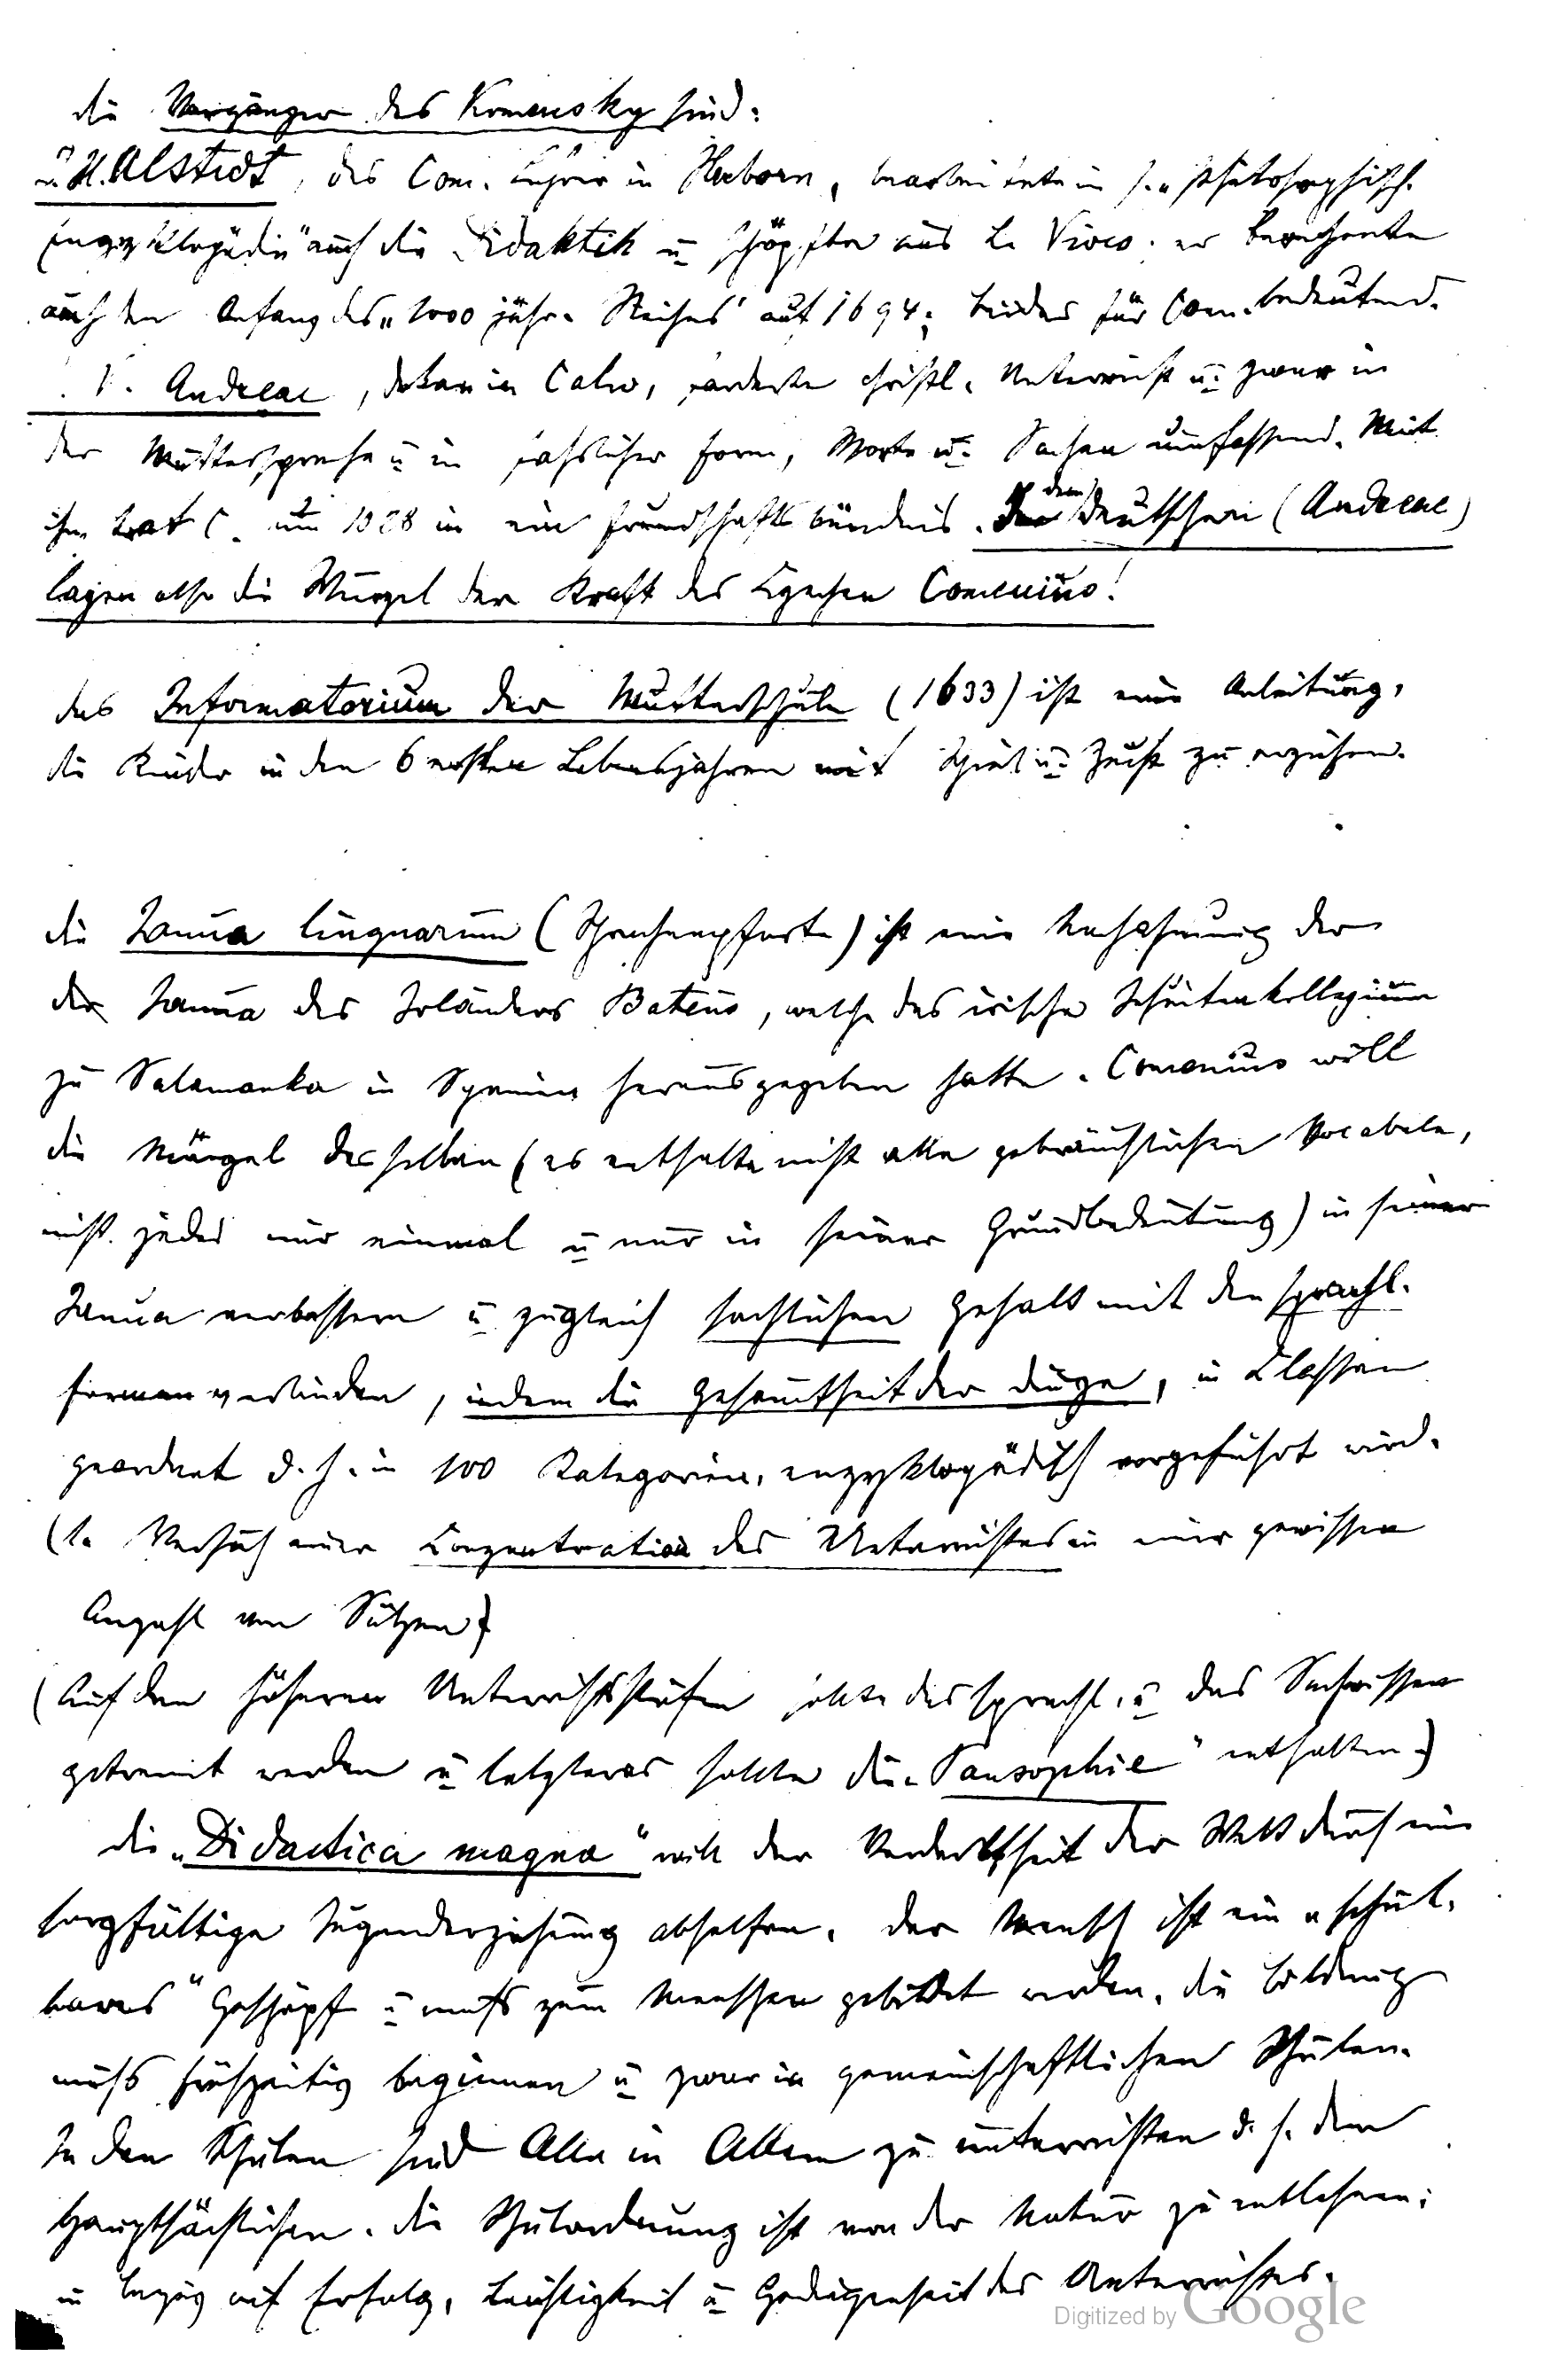 die Vorgänger des Komensky sind:
J. H. Alstedt, des Com. Lehrer in Herborn, bearbeitete in s. „philosophisch.
Enzyklopädie" auch die Didaktik u. schöpfte aus L. Vives. er berechnete
auch den Anfang des „1000 jähr. Reiches" auf 1694; beides für Com. bedeutend.
V. Andreae, Dekan in Calw, forderte christl. Unterricht u. zwar in
der Muttersprache u. in fasslicher Form, Worte u. Sachen umfassend. Mit
ihm trat C. um 1628 in ein Freundschaftsbündnis. In dem Deutschen (Andreae)
lagen also die Wurzel der Kraft des Czechen Comenius!
das Informatorium der Mutterschule (1633) ist eine Anleitung,
die Kinder in den 6 ersten Lebensjahren mit Spiel u. Zucht zu erziehen.
die Janua linguarum (Sprachenpforte) ist eine Nachahmung der
der Janua des Irländers Bateus, welche das irische Jesuitenkollegium
zu Salamanka in Spanien herausgegeben hatte. Comenius will
die Mängel derselben (es enthalte nicht alle gebräuchlichen Vocabeln,
nicht jedes nur einmal u. nur in seiner Grundbedeutung) in seiner
Janua verbessern u. zugleich sachlichen Gehalt mit den sprachl.
Formen verbinden, indem die Gesamtheit der Dinge, in Klassen
geordnet d. h. in 100 Kategorien, enzyklopädisch vorgeführt wird.
(1. Versuch einer Konzentration des Unterrichtes in einer gewissen
Anzahl von Sätzen)
(Auf den höheren Unterrichtsstufen sollte das sprachl. u. das Sachwissen
getrennt werden u. letzteres sollte die „Pansophie" enthalten.)
die „Didactica magna" will der Verderbtheit der Welt durch eine
sorgfältige Jugenderziehung abhelfen. Der Mensch ist ein „schul-
bares" Geschöpf u. muss zum Menschen gebildet werden. die Bildung
muss frühzeitig beginnen u. zwar in gemeinschaftlichen Schulen.
In den Schulen sind Alle in Allem zu unterrichten d. h. dem
Hauptsächlichen. die Schulordnung ist von der Natur zu entlehnen;
in bezug auf Erfolg, Leichtigkeit u. Gediegenheit des Unterrichtes.
Digitized by Google